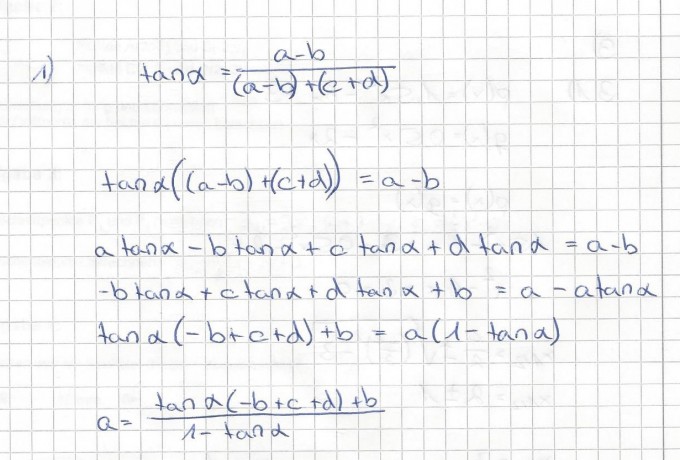 1) tanα = (a-b)/((a-b)+(c+d))
tanα((a-b)+(c+d)) = a-b
a tanα - b tanα + c tanα + d tanα = a-b
-b tanα + c tanα + d tanα + b = a - a tanα
tanα(-b+c+d)+b = a(1-tanα)
a = (tanα(-b+c+d)+b)/(1-tanα)